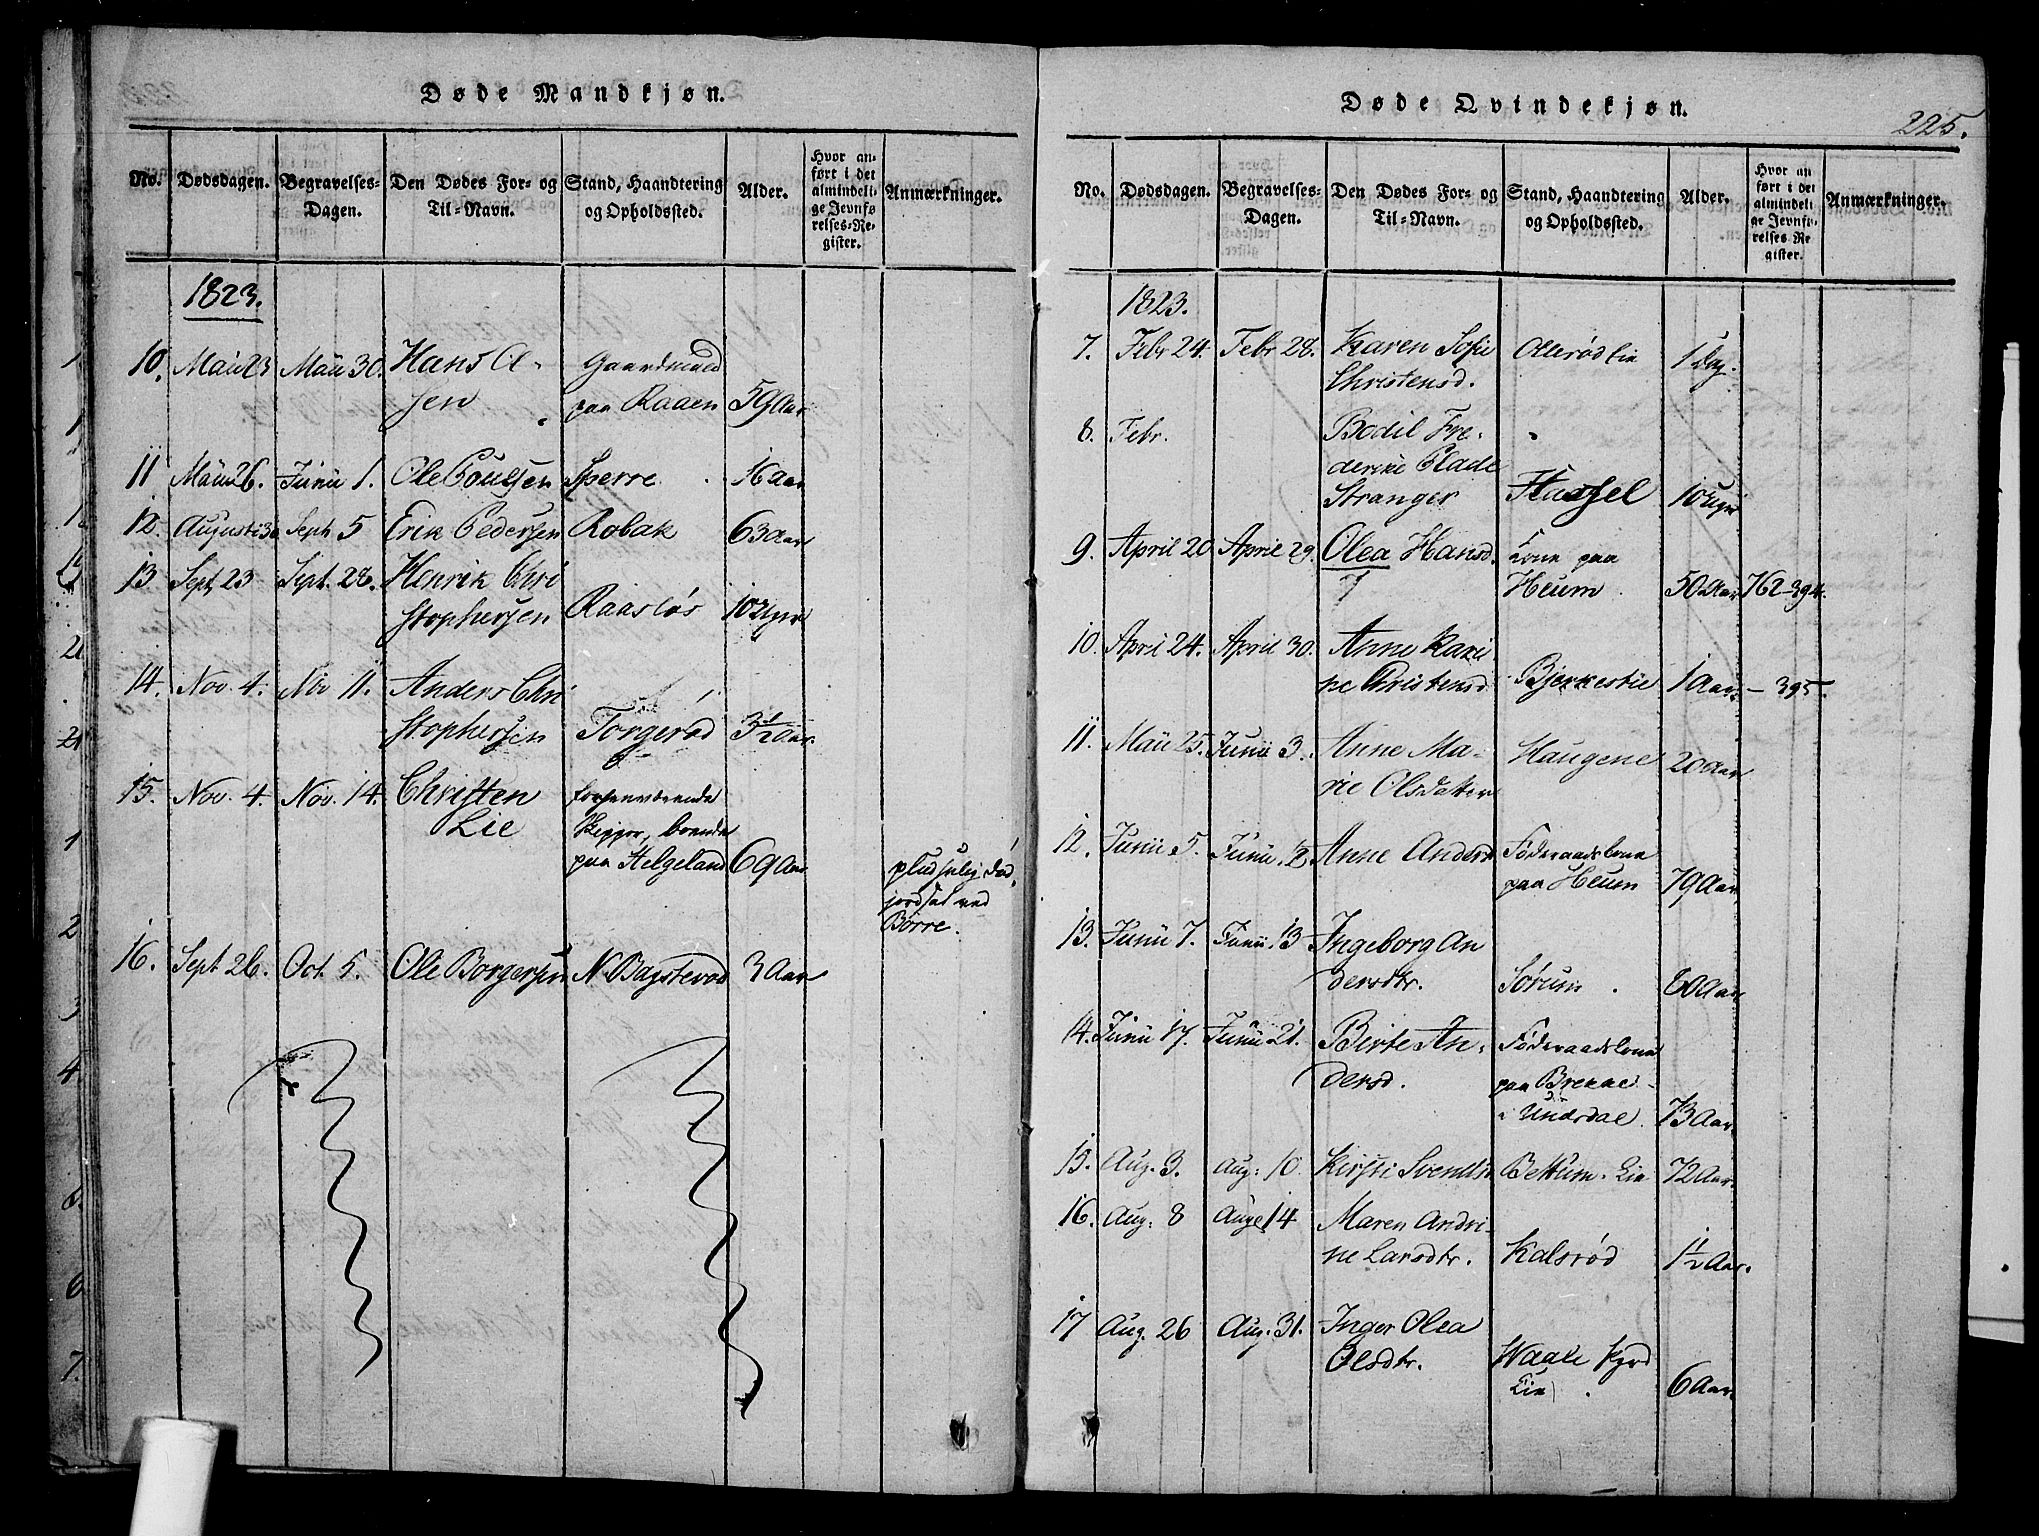 Døde Mandkjøn.
No. Dødsdagen. Begravelses-Dagen. Den Dødes For- og Til-Navn. Stand, Haandtering og Opholdssted. Alder. Hvor anført i det almindelige Jevnførelses-Register. Anmærkninger.
1823.
10. Maii 23 Maii 30. Hans O-
sen Gaardmand
paa Raaen 59 Aar
11 Maii 26. Junii 1. Ole Poulsen Sperre. 16 Aar
12. Augusti 30 Sept 5 Erik Pedersen Robak 63 Aar
13 Sept 23 Sept. 28. Henrik Chri
stophersen Raasløs 10 Uger
14. Nov. 4. Nov 11. Anders Chri
stophersen Torgerød 3½ Aar.
15. Nov. 4. Nov. 14. Christen
Lie forhenværende
Skipper, boende
paa Helgeland 69 Aar pludselig død,
jordsat ved
Børre.
16. Sept 26. Oct. 5. Ole Borgersen N. Bagsterod 3 Aar
Døde Qvindekjøn.
225.
No. Dødsdagen. Begravelses-Dagen. Den Dødes For- og Til-Navn. Stand, Haandtering og Opholdssted. Alder. Hvor anført i det almindelige Jevnførelses Register. Anmærkninger.
1823.
7. Febr 24. Febr 28. Karen Sofie
Christensd. Ollerød Lie 1 Dag.
8. Febr. Bodil Fre-
derike Plade
Stranger Hassel 10 Uger
9. April 20 April 29. Olea Hansd. Kone paa
Heum. 50 Aar 762-394.
10. April 24. April 30. Anne Kari-
ne Christensd. Bjerkestie 1 Aar - 395.
11. Maii 25. Junii 3. Anne Ma-
rie Olsdatter Haugene 20 Aar
12. Junii 5. Junii 12 Anne Andersd Føderaadskone
paa Heum 79 Aar
13. Junii 7. Junii 13 Ingeborg An
dersdtr. Sørum. 60 Aar
14. Junii 17. Junii 21. Birte An-
dersd. Føderaadskone
paa Brekke
i Undrsdal. 73 Aar.
15. Aug. 3. Aug: 10. Kirsti Svendsd Bettum. Lie 72 Aar.
16. Aug: 8 Aug 14 Maren Andri-
ne Larsdtr. Kalsrød 1½ Aar.
17 Aug. 26 Aug: 31. Inger Olea
Olsdtr. Waale
Lie 6 Aar